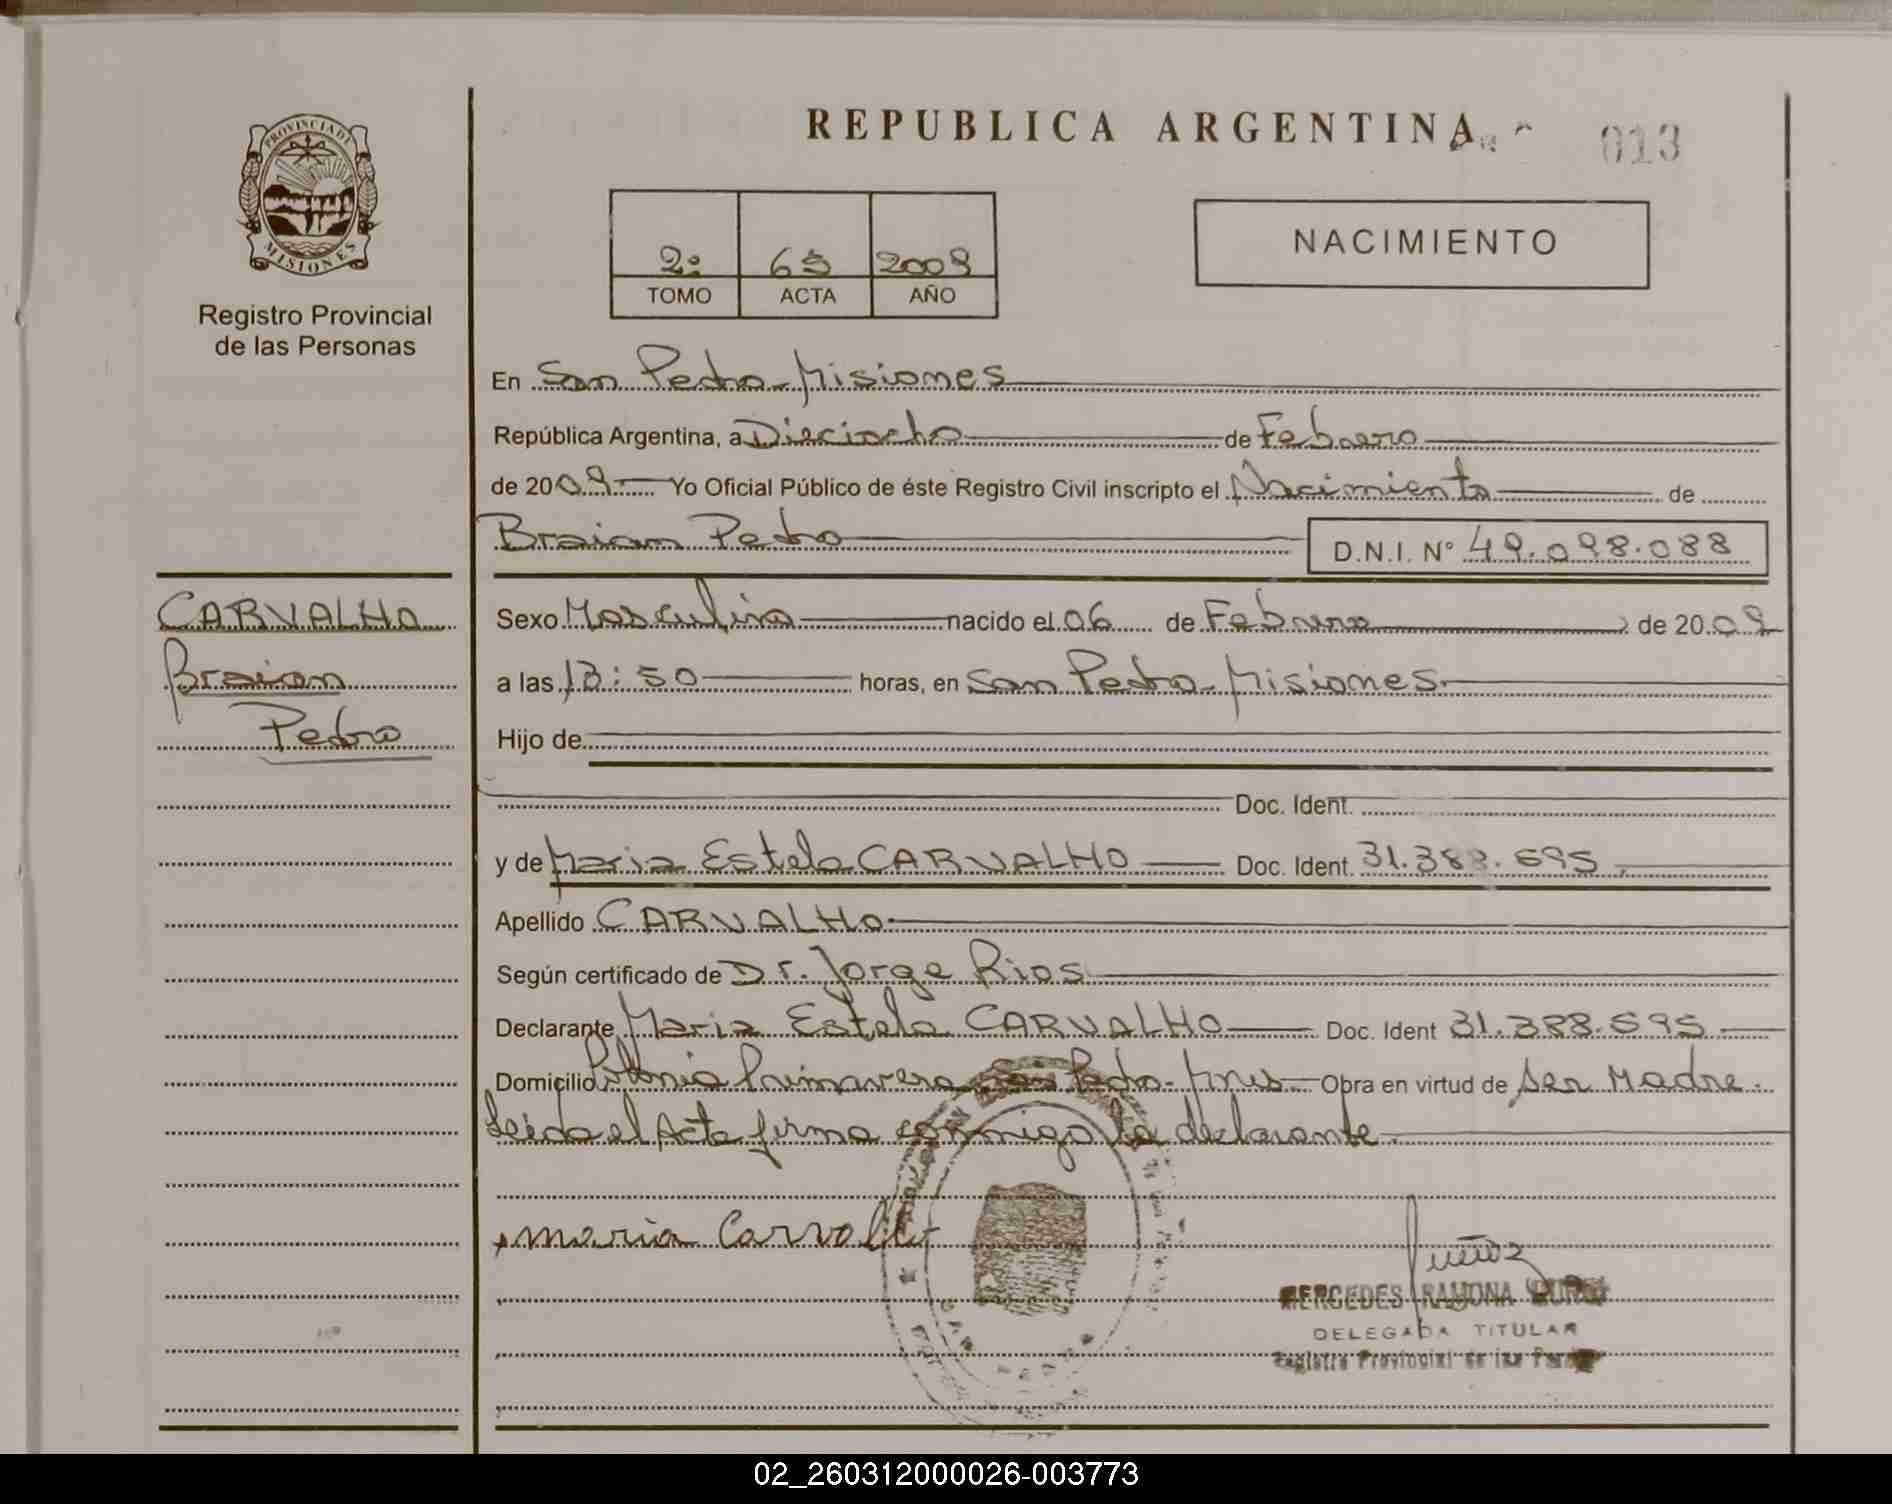 REPUBLICA ARGENTINA
013
PROVINCIA DE
MISIONES
Registro Provincial
de las Personas
2º 69 2009
TOMO ACTA AÑO
NACIMIENTO
En San Pedro-Misiones
República Argentina, a Dieciocho de Febrero
de 2009 Yo Oficial Público de éste Registro Civil inscripto el Nacimiento de
Braian Pedro D.N.I. Nº 49.098.088
CARVALHO
Braian
Pedro
Sexo Masculino nacido el 06 de Febrero de 2009
a las 13:50 horas, en San Pedro-Misiones.
Hijo de
Doc. Ident.
y de Maria Estela CARVALHO Doc. Ident. 31.388.595
Apellido CARVALHO
Según certificado de Dr. Jorge Rios
Declarante Maria Estela CARVALHO Doc. Ident 31.388.595
Domicilio Colonia Primavera San Pedro-Mnes Obra en virtud de ser Madre.
Leída el Acta firma conmigo la declarante.
maria Carvalho
MERCEDES RAMONA
DELEGADA TITULAR
Registro Provincial de las
02_260312000026-003773